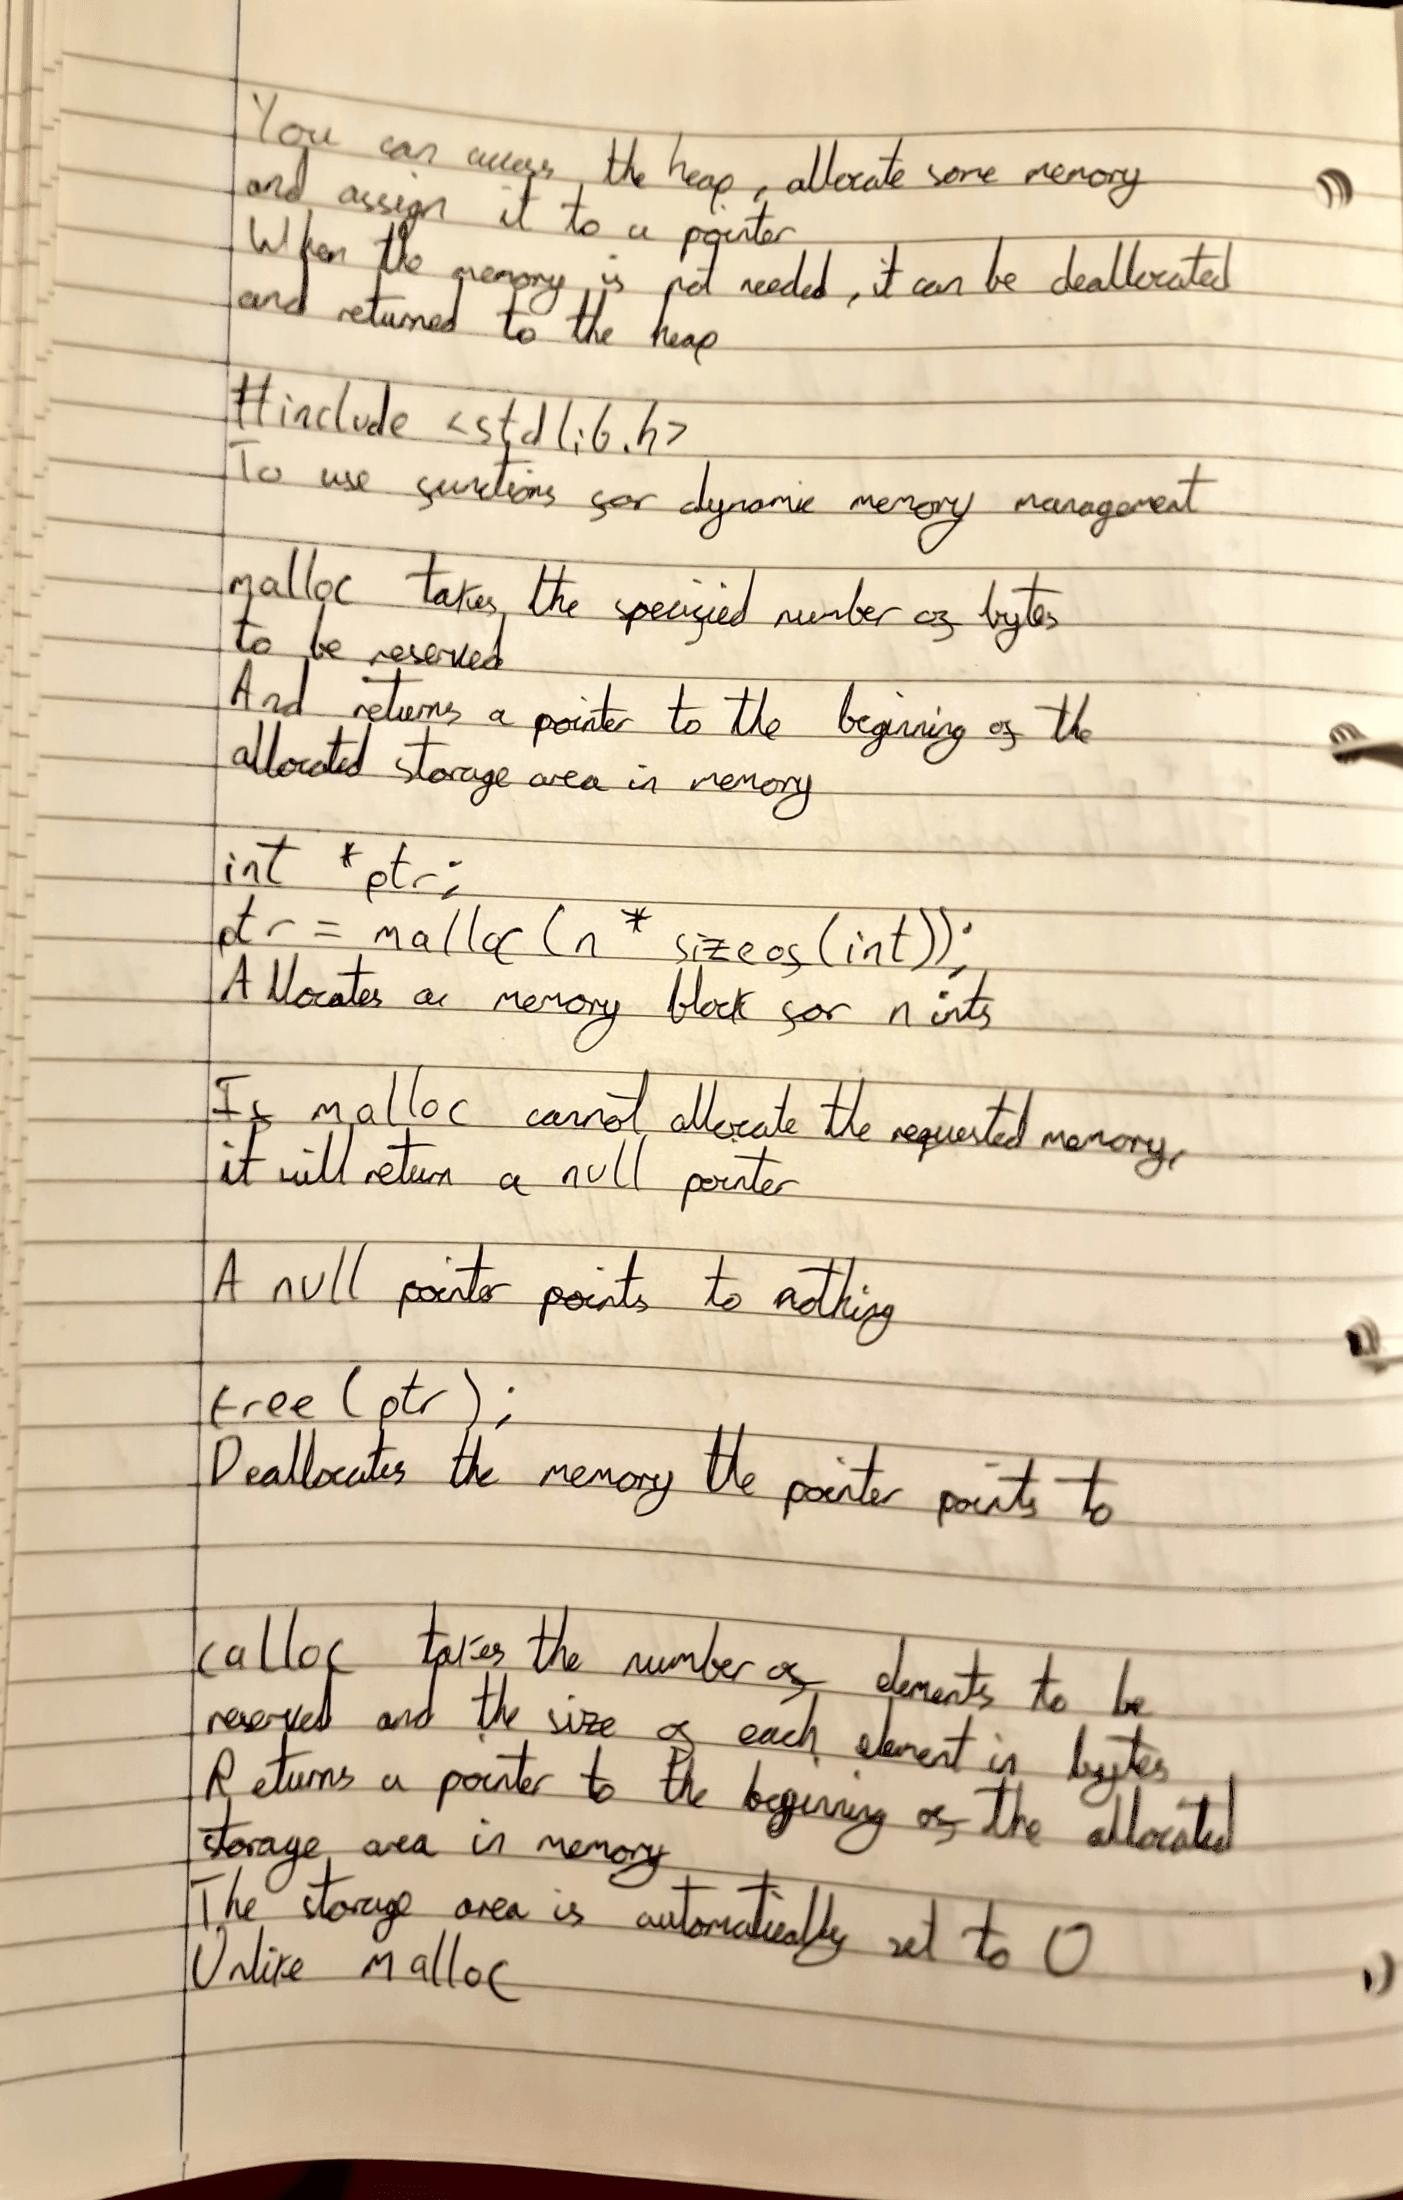 You can access the heap, allocate some memory
and assign it to a pointer
When the memory is not needed, it can be deallocated
and returned to the heap
#include <stdlib.h>
To use functions for dynamic memory management
malloc takes the specified number of bytes
to be reserved
And returns a pointer to the beginning of the
allocated storage area in memory
int *ptr;
ptr = malloc (n * sizeof (int));
Allocates a memory block for n ints
If malloc cannot allocate the requested memory,
it will return a null pointer
A null pointer points to nothing
free (ptr);
Deallocates the memory the pointer points to
calloc takes the number of elements to be
reserved and the size of each element in bytes
Returns a pointer to the beginning of the allocated
storage area in memory
The storage area is automatically set to 0
Unlike malloc